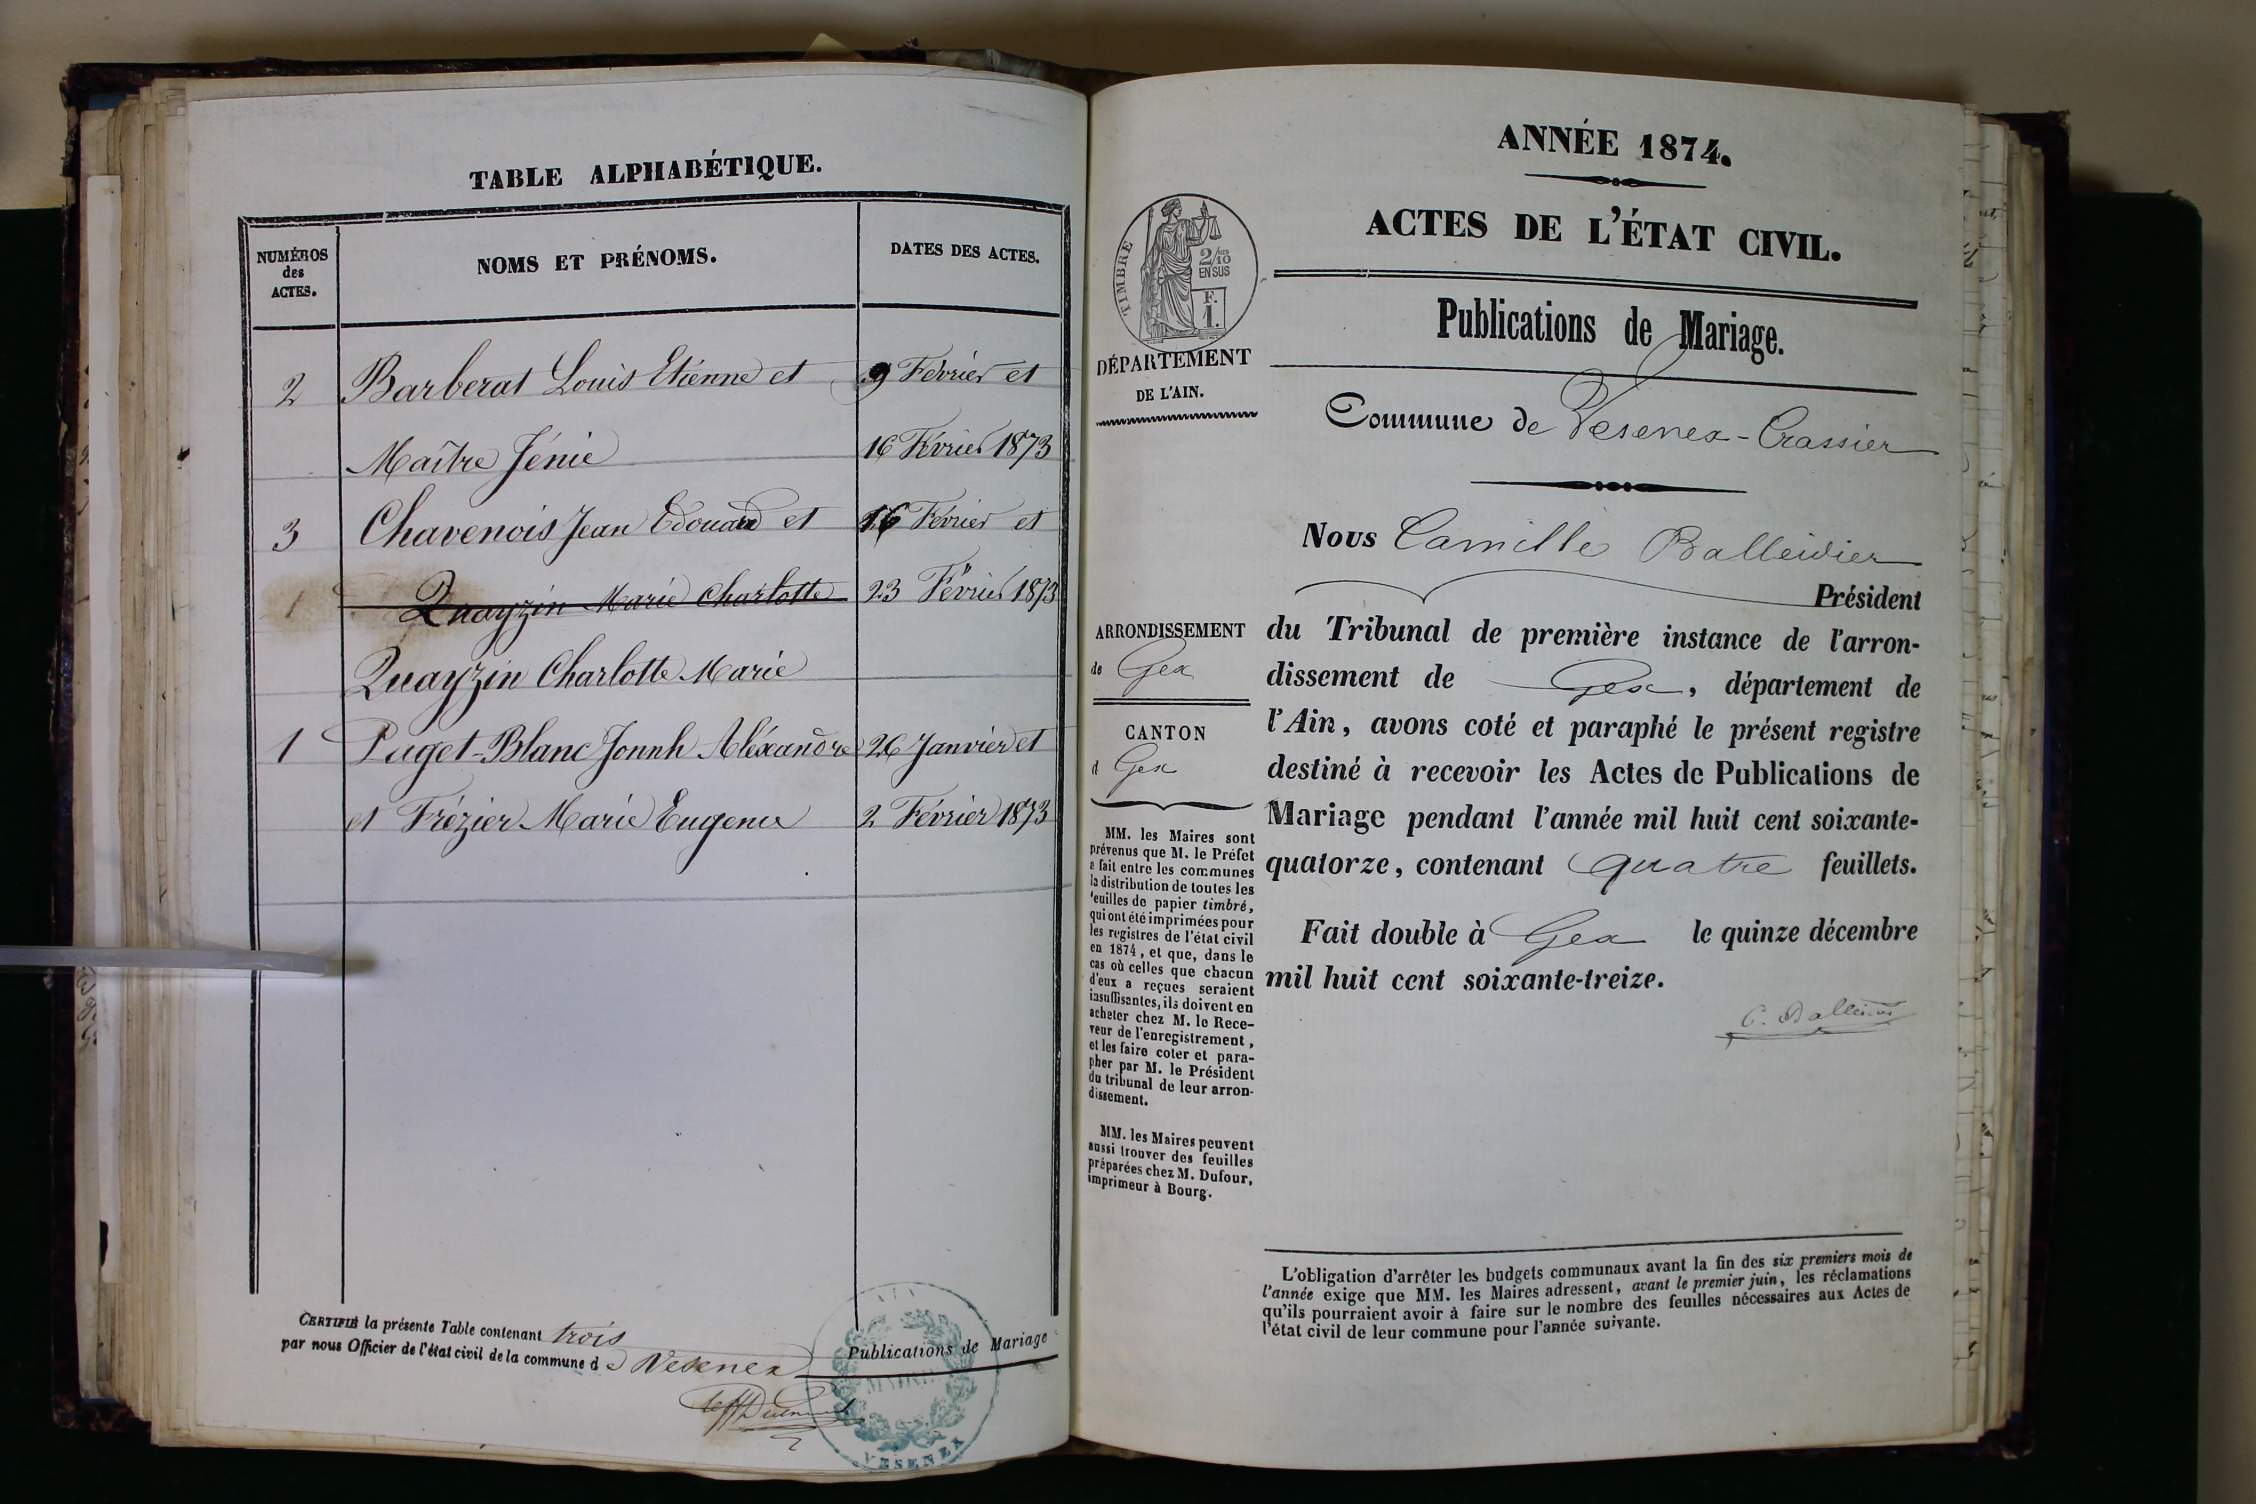 TABLE ALPHABÉTIQUE.
NUMÉROS
des
ACTES.
NOMS ET PRÉNOMS.
DATES DES ACTES.
2 Barberat Louis Etienne et 9 Février et
Maître Jénie 16 Février 1873
3 Chavenois Jean Edouard et 16 Février et
1 Quayzin Marie Charlotte 23 Février 1873
Quayzin Charlotte Marie
1 Puget-Blanc Jonnh Aléxandre 26 Janvier et
et Frézier Marie Eugenie 2 Février 1873
CERTIFIÉ la présente Table contenant trois Publications de Mariage
par nous Officier de l'état civil de la commune d e Vesenex
MAIRIE
VESENEX
ANNÉE 1874.
ACTES DE L'ÉTAT CIVIL.
TIMBRE
2/10
EN SUS
F.
1.
DÉPARTEMENT
DE L'AIN.
Publications de Mariage.
Commune de Vesenex-Crassier
ARRONDISSEMENT
de Gex
CANTON
d Gex
MM. les Maires sont
prévenus que M. le Préfet
a fait entre les communes
la distribution de toutes les
feuilles de papier timbré,
qui ont été imprimées pour
les registres de l'état civil
en 1874, et que, dans le
cas où celles que chacun
d'eux a reçues seraient
insuffisantes, ils doivent en
acheter chez M. le Rece-
veur de l'enregistrement,
et les faire coter et para-
pher par M. le Président
du tribunal de leur arron-
dissement.
MM. les Maires peuvent
aussi trouver des feuilles
préparées chez M. Dufour,
imprimeur à Bourg.
Nous Camille Balleidier
Président
du Tribunal de première instance de l'arron-
dissement de Gex, département de
l'Ain, avons coté et paraphé le présent registre
destiné à recevoir les Actes de Publications de
Mariage pendant l'année mil huit cent soixante-
quatorze, contenant quatre feuillets.
Fait double à Gex le quinze décembre
mil huit cent soixante-treize.
C. Balleidier
L'obligation d'arrêter les budgets communaux avant la fin des six premiers mois de
l'année exige que MM. les Maires adressent, avant le premier juin, les réclamations
qu'ils pourraient avoir à faire sur le nombre des feuilles nécessaires aux Actes de
l'état civil de leur commune pour l'année suivante.